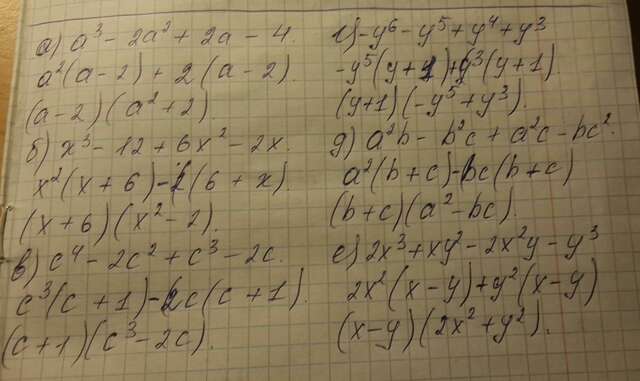 а) a³ - 2a² + 2a - 4.
a²(a-2) + 2(a-2).
(a-2)(a²+2).
б) x³ - 12 + 6x² - 2x.
x²(x+6) - 2(6+x).
(x+6)(x²-2).
в) c⁴ - 2c² + c³ - 2c.
c³(c+1) - 2c(c+1).
(c+1)(c³-2c).
г) -y⁶ - y⁵ + y⁴ + y³
-y⁵(y+1) + y³(y+1).
(y+1)(-y⁵+y³).
д) a²b - b²c + a²c - bc².
a²(b+c) - bc(b+c)
(b+c)(a²-bc).
е) 2x³ + xy² - 2x²y - y³
2x²(x-y) + y²(x-y)
(x-y)(2x²+y²).